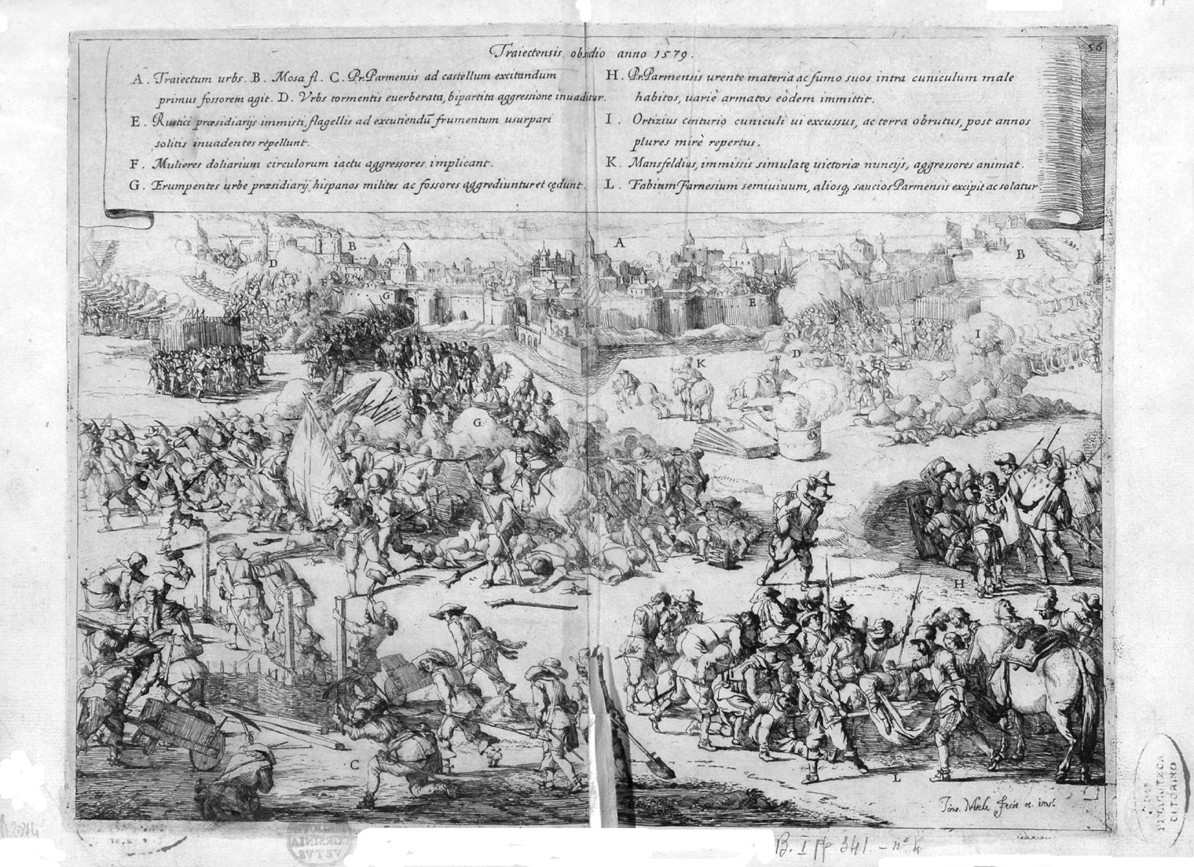 Traiectensis obsidio anno 1579.
56
A. Traiectum urbs. B. Mosa fl. C. Pr. Parmensis ad castellum excitandum
primus fossorem agit. D. Vrbs tormentis euerberata, bipartita aggressione inuaditur.
E. Rustici præsidiarijs immisti, flagellis ad excutiendū frumentum usurpari
solitis inuadentes repellunt.
F. Mulieres doliarium circulorum iactu aggressores implicant.
G. Erumpentes urbe præsidiarij, hispanos milites ac fossores aggrediuntur et cędunt.
H. Pr. Parmensis urente materia ac fumo suos intra cuniculum male
habitos, uariè armatos eòdem immittit.
I. Ortizius centurio cuniculi ui excussus, ac terra obrutus, post annos
plures mirè repertus.
K. Mansfeldius, immissis simulatę uictorię nuncijs, aggressores animat.
L. Fabium Farnesium semiuiuum, aliosq, saucios Parmensis excipit ac solatur.
A
B
B
D
G
E
I
K
D
G
H
C
L